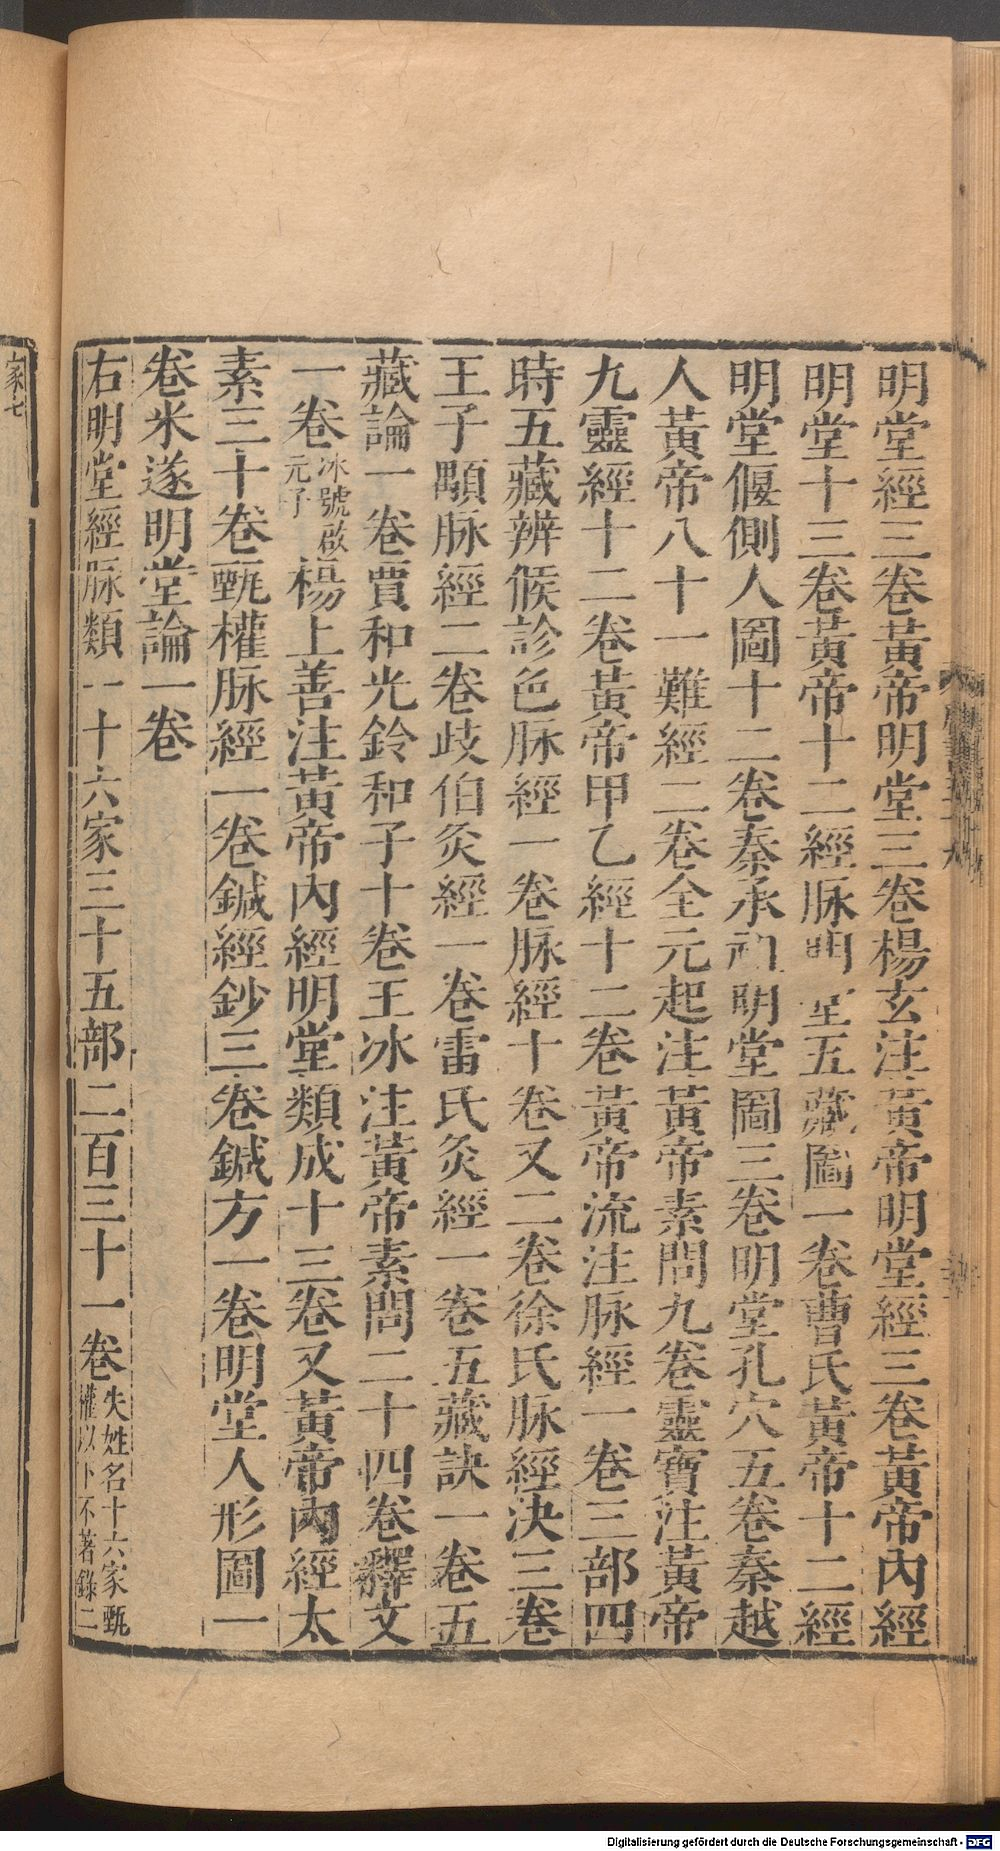 明堂經三卷黃帝明堂三卷楊玄注黃帝明堂經三卷黃帝內經
明堂十三卷黃帝十二經脉明堂五藏圖一卷曹氏黃帝十二經
明堂偃側人圖十二卷秦承祖明堂圖三卷明堂孔穴五卷秦越
人黃帝八十一難經二卷全元起注黃帝素問九卷靈寶注黃帝
九靈經十二卷黃帝甲乙經十二卷黃帝流注脉經一卷三部四
時五藏辨候診色脉經一卷脉經十卷又二卷徐氏脉經決三卷
王子顒脉經二卷歧伯灸經一卷雷氏灸經一卷五藏訣一卷五
藏論一卷賈和光鈴和子十卷王冰注黃帝素問二十四卷釋文
一卷冰號啟元子楊上善注黃帝內經明堂類成十三卷又黃帝內經太
素三十卷甄權脉經一卷鍼經鈔三卷鍼方一卷明堂人形圖一
卷米遂明堂論一卷
右明堂經脉類一十六家三十五部二百三十一卷失姓名十六家甄權以下不著錄二
家七
Digitalisierung gefördert durch die Deutsche Forschungsgemeinschaft - DFG